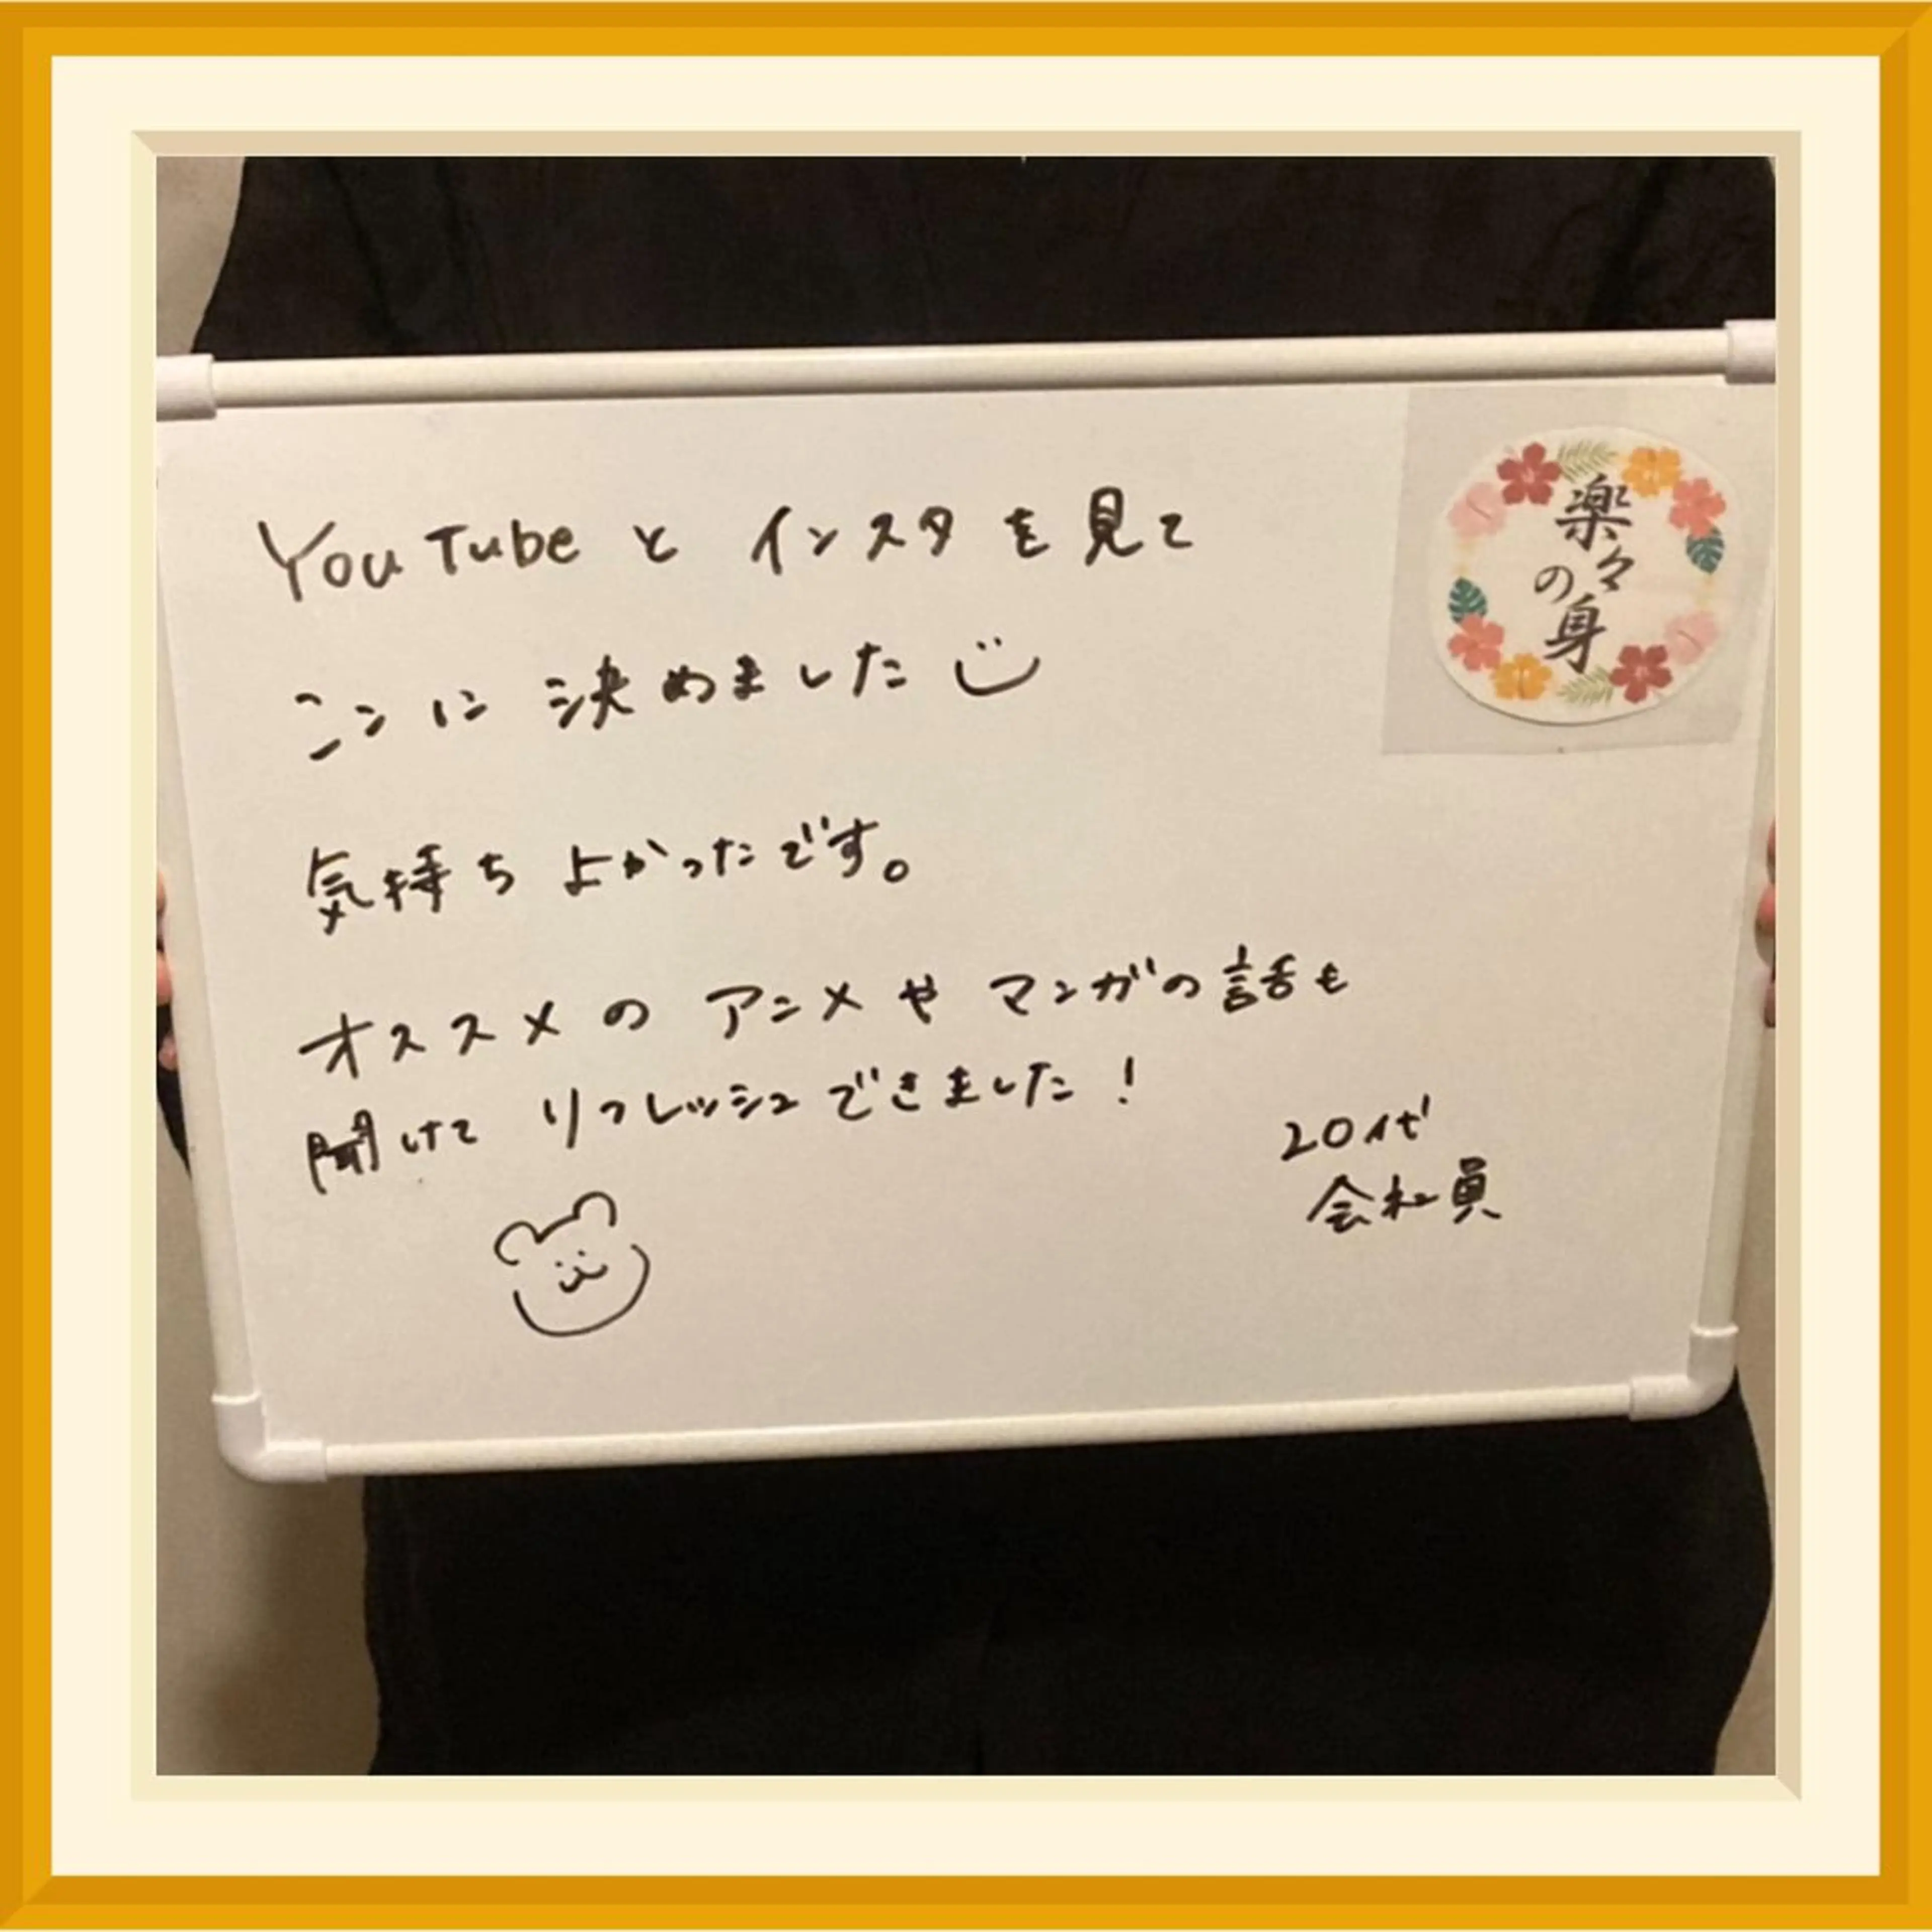 YouTube と インスタ を 見て
ここに 決めました
気持ち よかったです。
オススメの アニメや マンガの話も
聞けて リフレッシュできました！
20代
会社員
楽々
の身